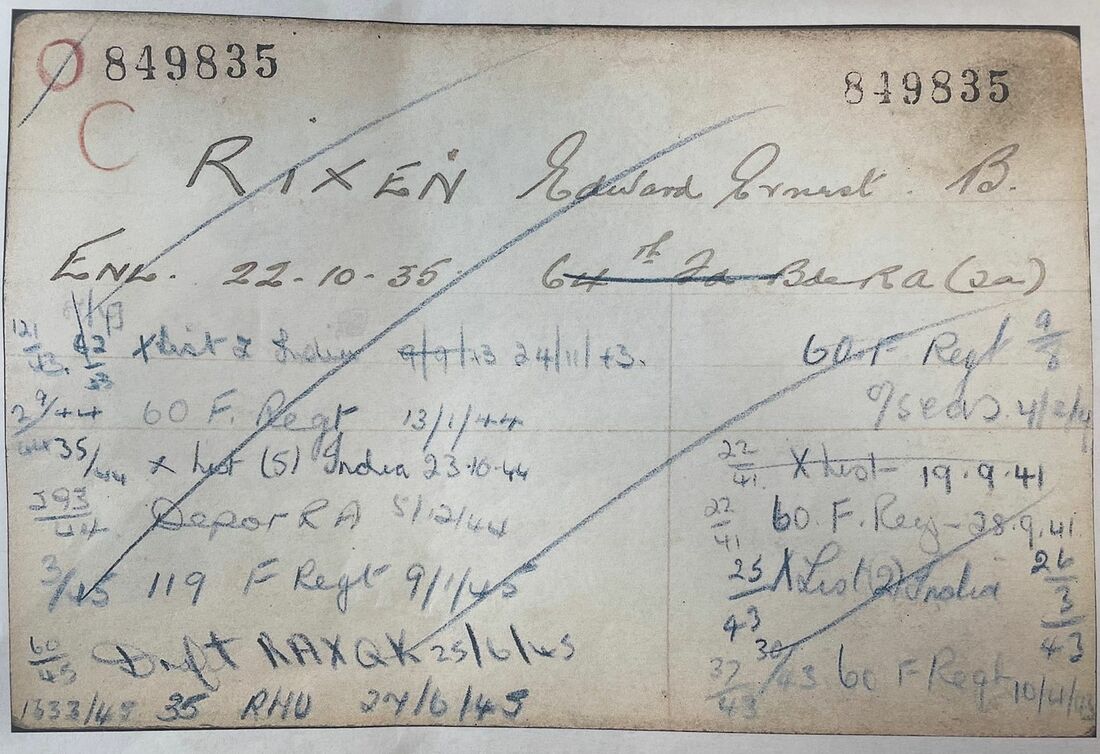 849835 849835
C
RIXEN Edward Ernest. B.
ENL. 22-10-35. 64th Fd Bde RA (TA)
121/43. X List 2 India 9/9/43 24/11/43.
60 F Regt 9/3
29/44 60 F. Regt 13/1/44
O/Seas 4/2/4
35/44 X List (5) India 23.10.44
22/41. X List 19.9.41
293/44 Depot RA 5/12/44
22/41 60. F. Reg- 28.9.41
3/45 119 F Regt 9/1/45
25/43 X List (2) India 26/3/43
60/45 Draft RAXQK 25/6/45
37/43 30/43 60 F Regt 10/4/43
1633/45 35 RHU 27/6/45